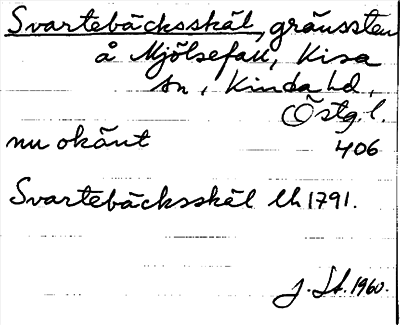 Svartebäcksskäl, gränssten
å Mjölsefall, Kisa
sn, Kinda hd,
Östg.l.
nu okänt 406
Svartebäcksskäl lh 1791.
J. St. 1960.